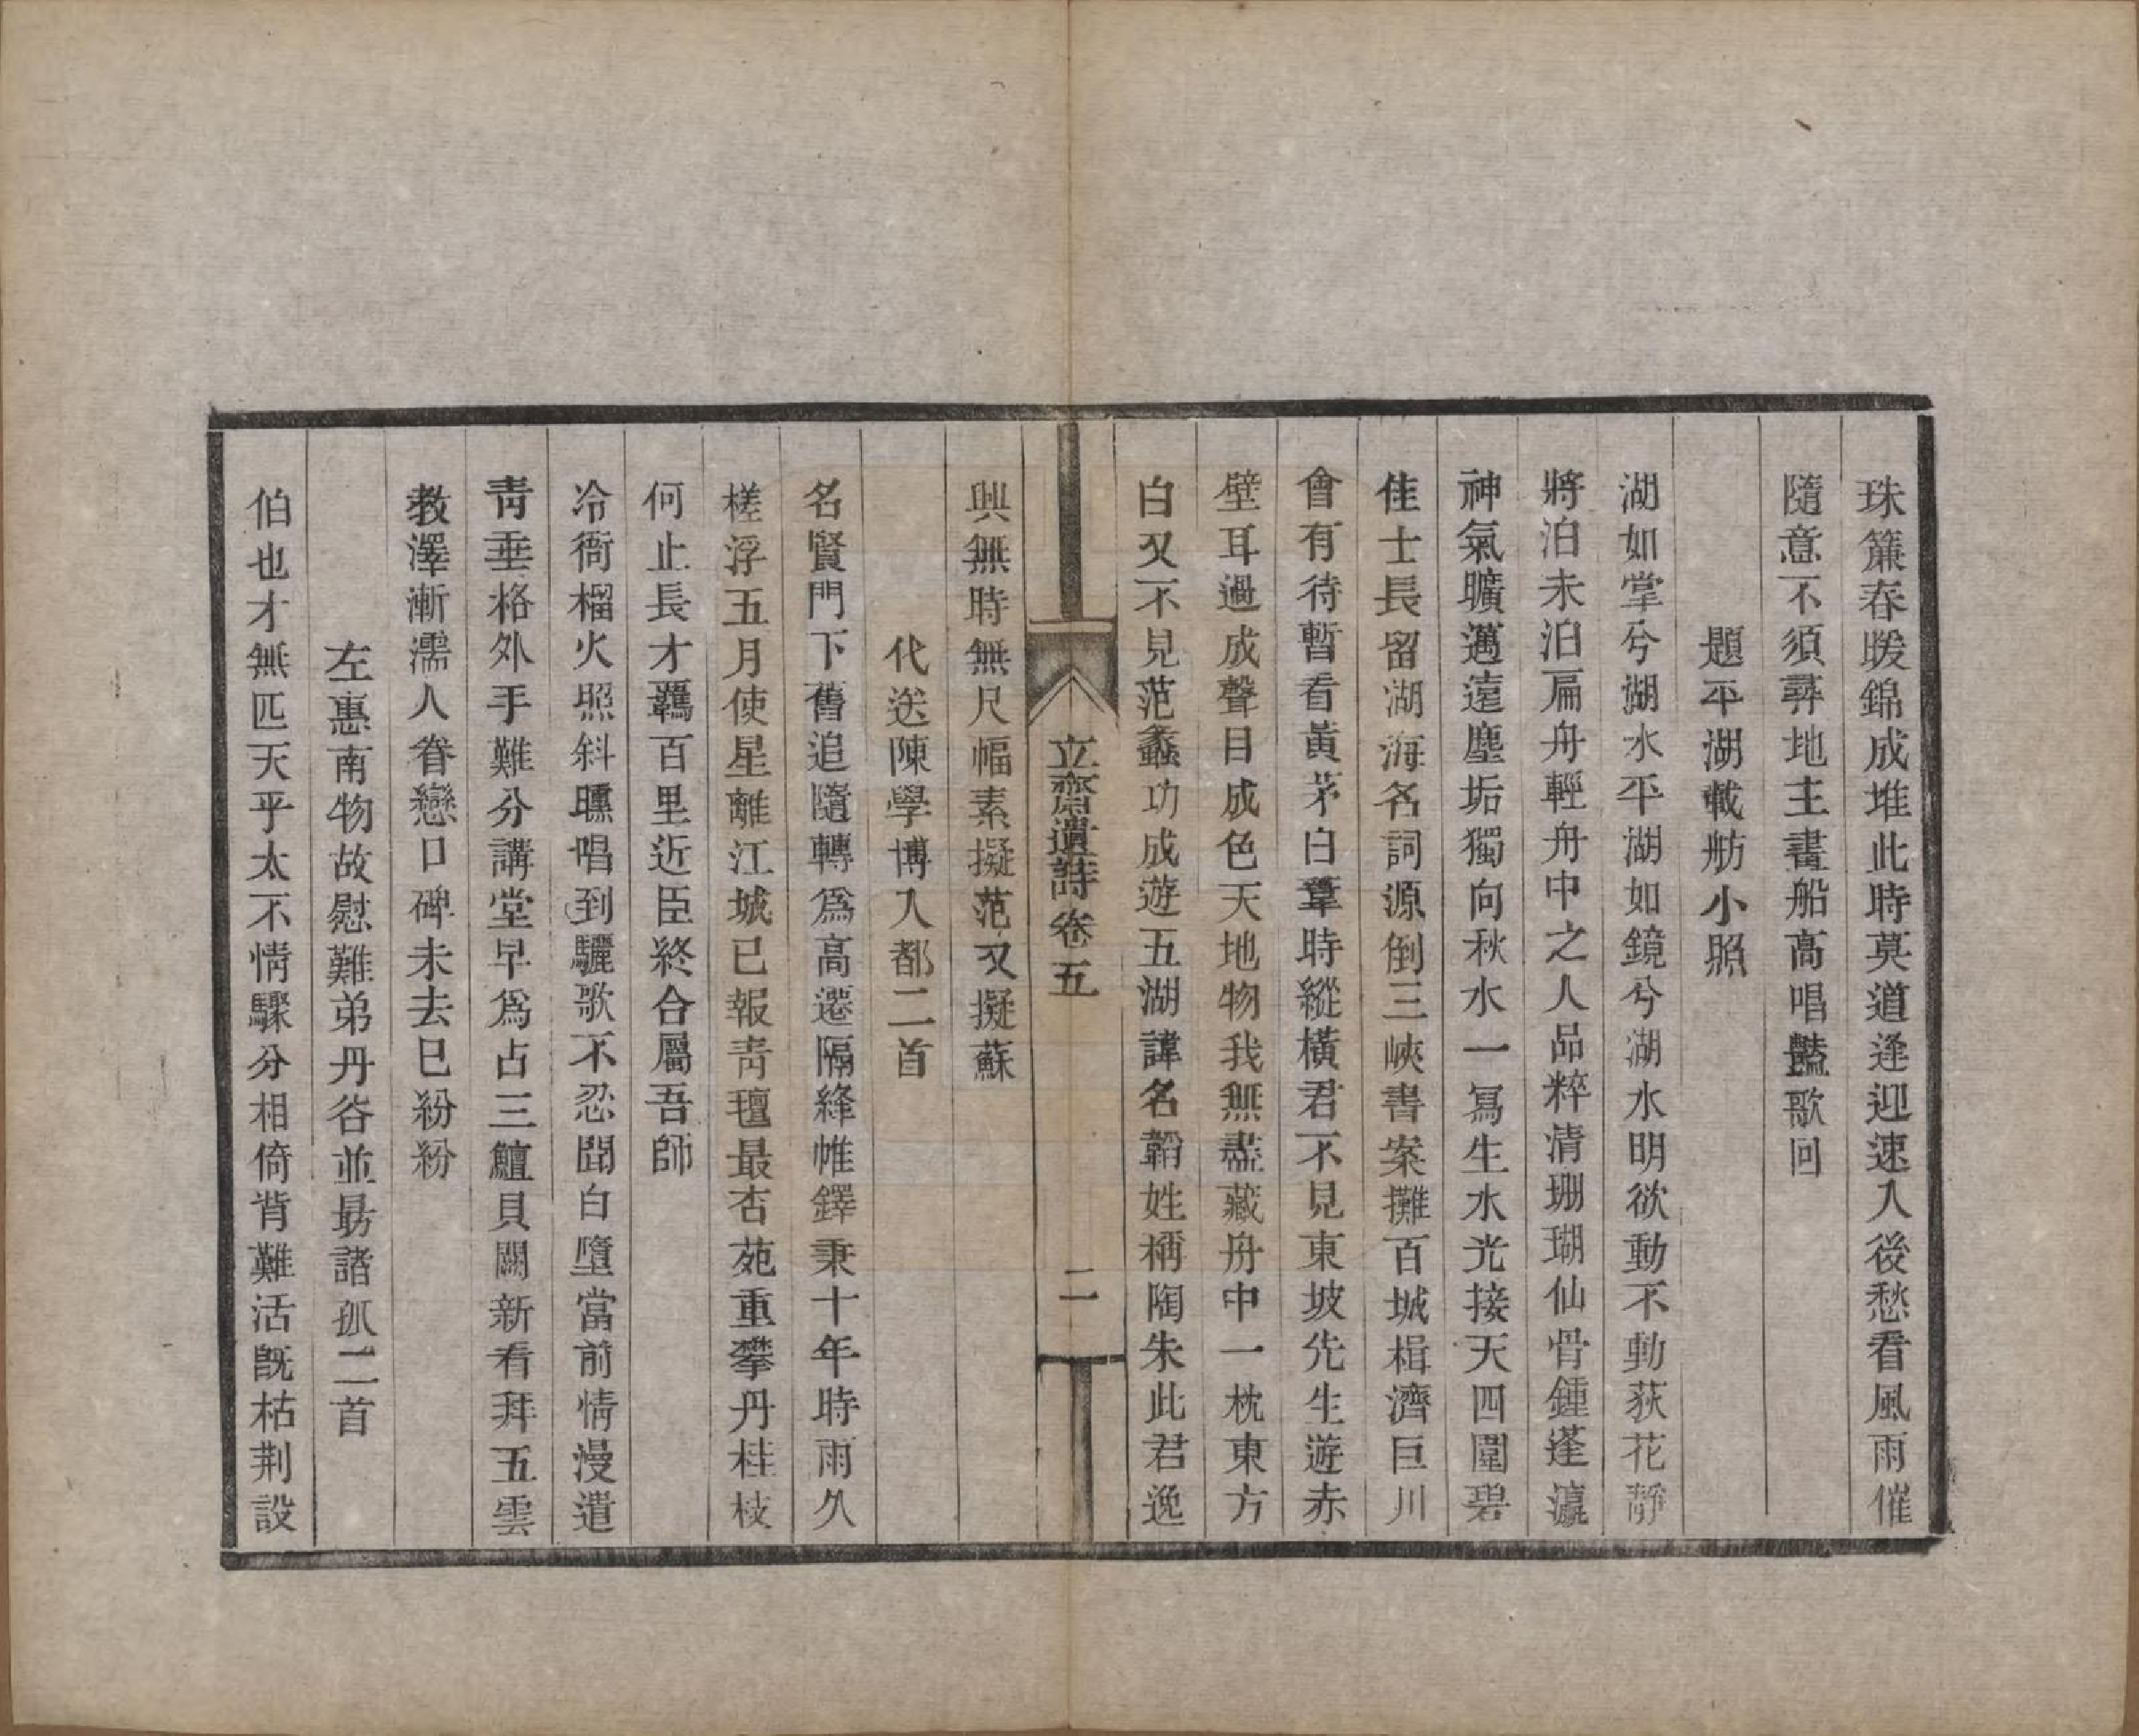 珠簾春暖錦成堆此時莫道逢迎速人後愁看風雨催
隨意不須尋地主畫船高唱豔歌回
題平湖載舫小照
湖如掌兮湖水平湖如鏡兮湖水明欲動不動荻花靜
將泊未泊扁舟輕舟中之人品粹清珊瑚仙骨鍾蓬瀛
神氣曠邁遠塵垢獨向秋水一寫生水光接天四圍碧
佳士長留湖海名詞源倒三峽書案攤百城楫濟巨川
會有待暫看黃茅白葦時縱橫君不見東坡先生遊赤
壁耳過成聲目成色天地物我無盡藏舟中一枕東方
白又不見范蠡功成遊五湖諱名韜姓稱陶朱此君逸
立齋遺詩卷五
二
興無時無尺幅素擬范又擬蘇
代送陳學博入都二首
名賢門下舊追隨轉爲高遷隔絳帷鐸秉十年時雨久
槎浮五月使星離江城已報靑氊最杏苑重攀丹桂枝
何止長才羈百里近臣終合屬吾師
冷衙榴火照斜曛唱到驪歌不忍聞白墮當前情漫遣
靑垂格外手難分講堂早爲占三鱣貝闕新看拜五雲
教澤漸濡人眷戀口碑未去已紛紛
左惠南物故慰難弟丹谷並勗諸孤二首
伯也才無匹天乎太不情驟分相倚背難活旣枯荆設